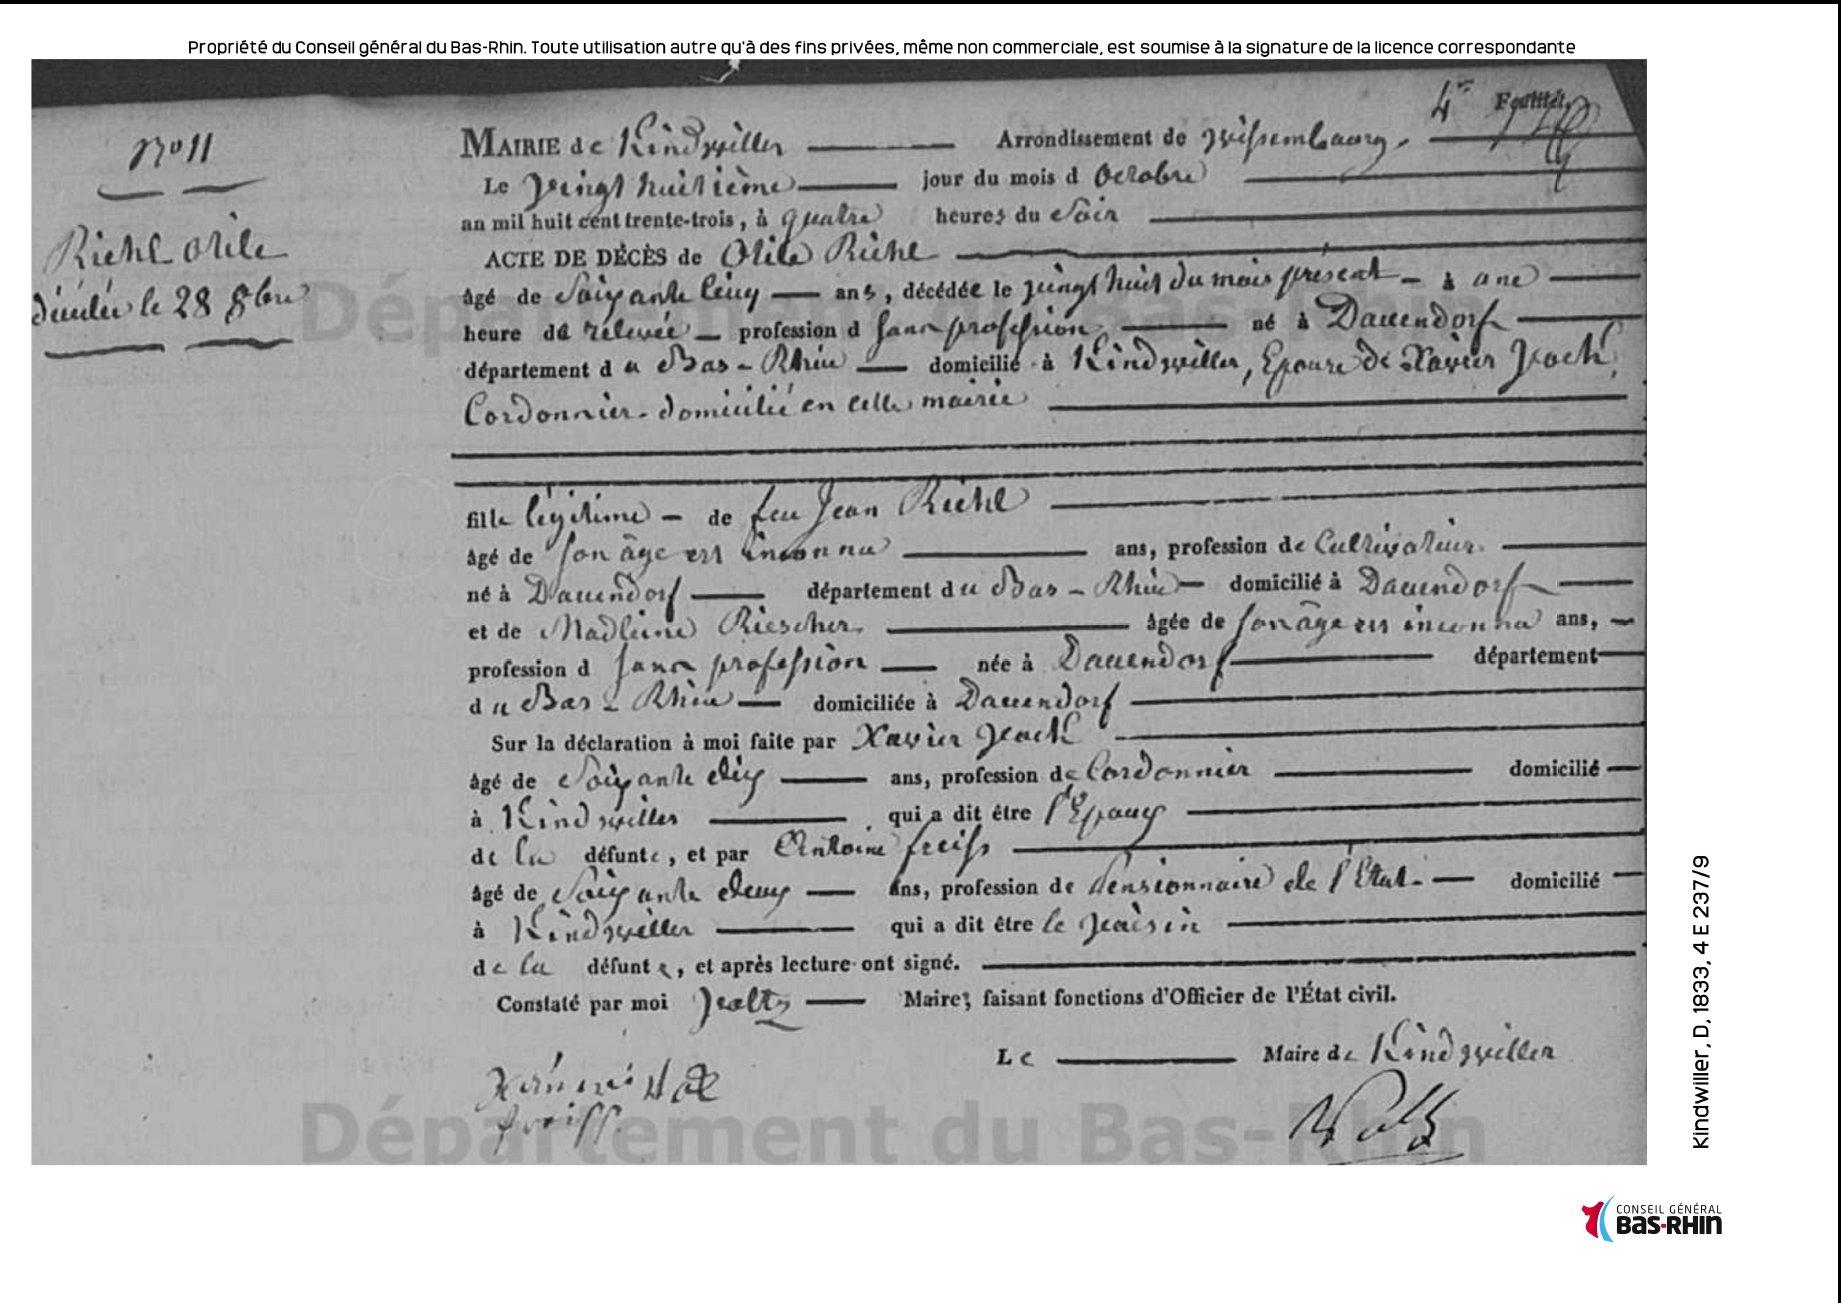 Propriété du Conseil général du Bas-Rhin. Toute utilisation autre qu'à des fins privées, même non commerciale, est soumise à la signature de la licence correspondante
4me Feuillet.
No 11
Riehl Otile
décédée le 28 8bre
MAIRIE de Kindwiller Arrondissement de Wissembourg.
Le Vingt huitième jour du mois d Octobre
an mil huit cent trente-trois, à quatre heures du Soir
ACTE DE DÉCÈS de Otile Riehl
âgé de Soixante cinq ans, décédée le vingt huit du mois présent à une
heure de relevée profession d sans profession né à Dauendorf
département du Bas-Rhin domicilié à Kindwiller, Epouse de Xavier
Cordonnier domicilié en cette mairie
fille légitime de feu Jean Riehl
âgé de son âge est inconnu ans, profession de Cultivateur
né à Dauendorf département du Bas-Rhin domicilié à Dauendorf
et de Madleine Riescher âgée de son âge est inconnu ans,
profession d sans profession née à Dauendorf département
du Bas-Rhin domiciliée à Dauendorf
Sur la déclaration à moi faite par Xavier
âgé de Soixante dix ans, profession de Cordonnier domicilié
à Kindwiller qui a dit être l'Epoux
de la défunte, et par Antoine freiss
âgé de Soixante deux ans, profession de Pensionnaire de l'Etat. domicilié
à Kindwiller qui a dit être le Voisin
de la défunte, et après lecture ont signé.
Constaté par moi Waltz Maire, faisant fonctions d'Officier de l'État civil.
Le Maire de Kindwiller
freiss
Waltz
Département du Bas-Rhin
Département du Bas-Rhin
Kindwiller, D, 1833, 4 E 237/9
CONSEIL GÉNÉRAL
BAS-RHIN